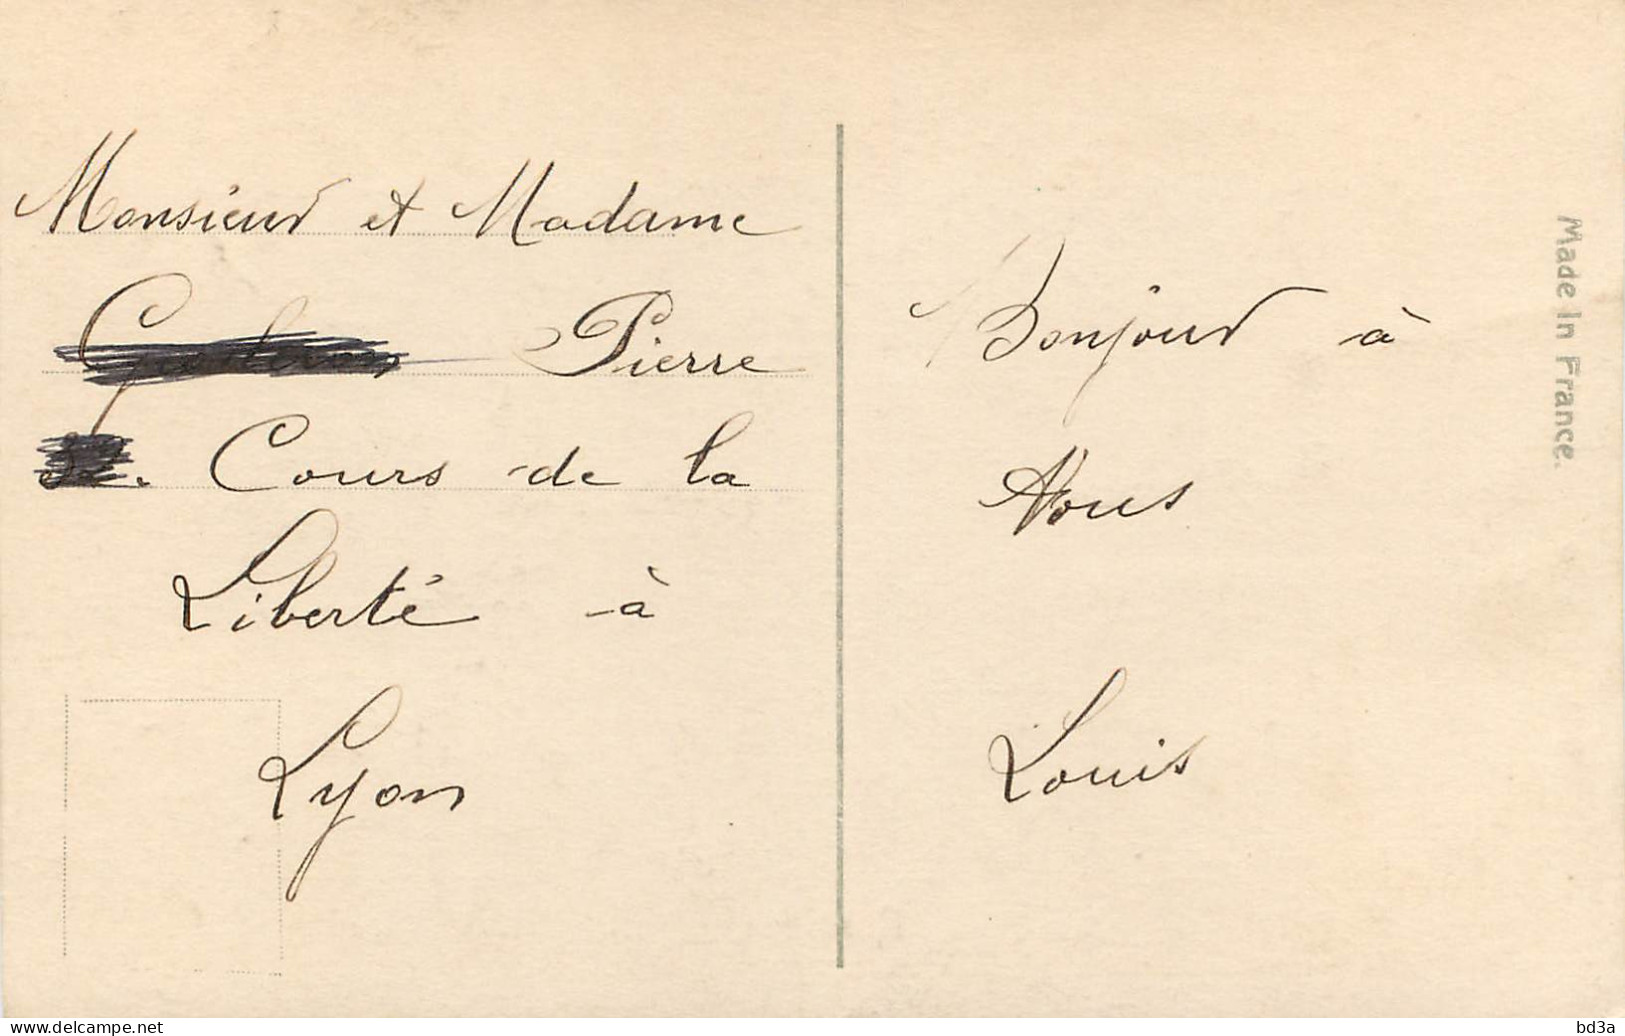 Monsieur et Madame
Pierre
Cours de la
Liberté à
Lyon
Bonjour à
Vous
Louis
Made in France.
www.delcampe.net
bd3a